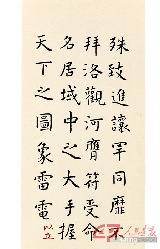 殊致進讓罕同靡不
拜洛觀河膺符受命
名居域中之大手握
天下之圖象雷電以立